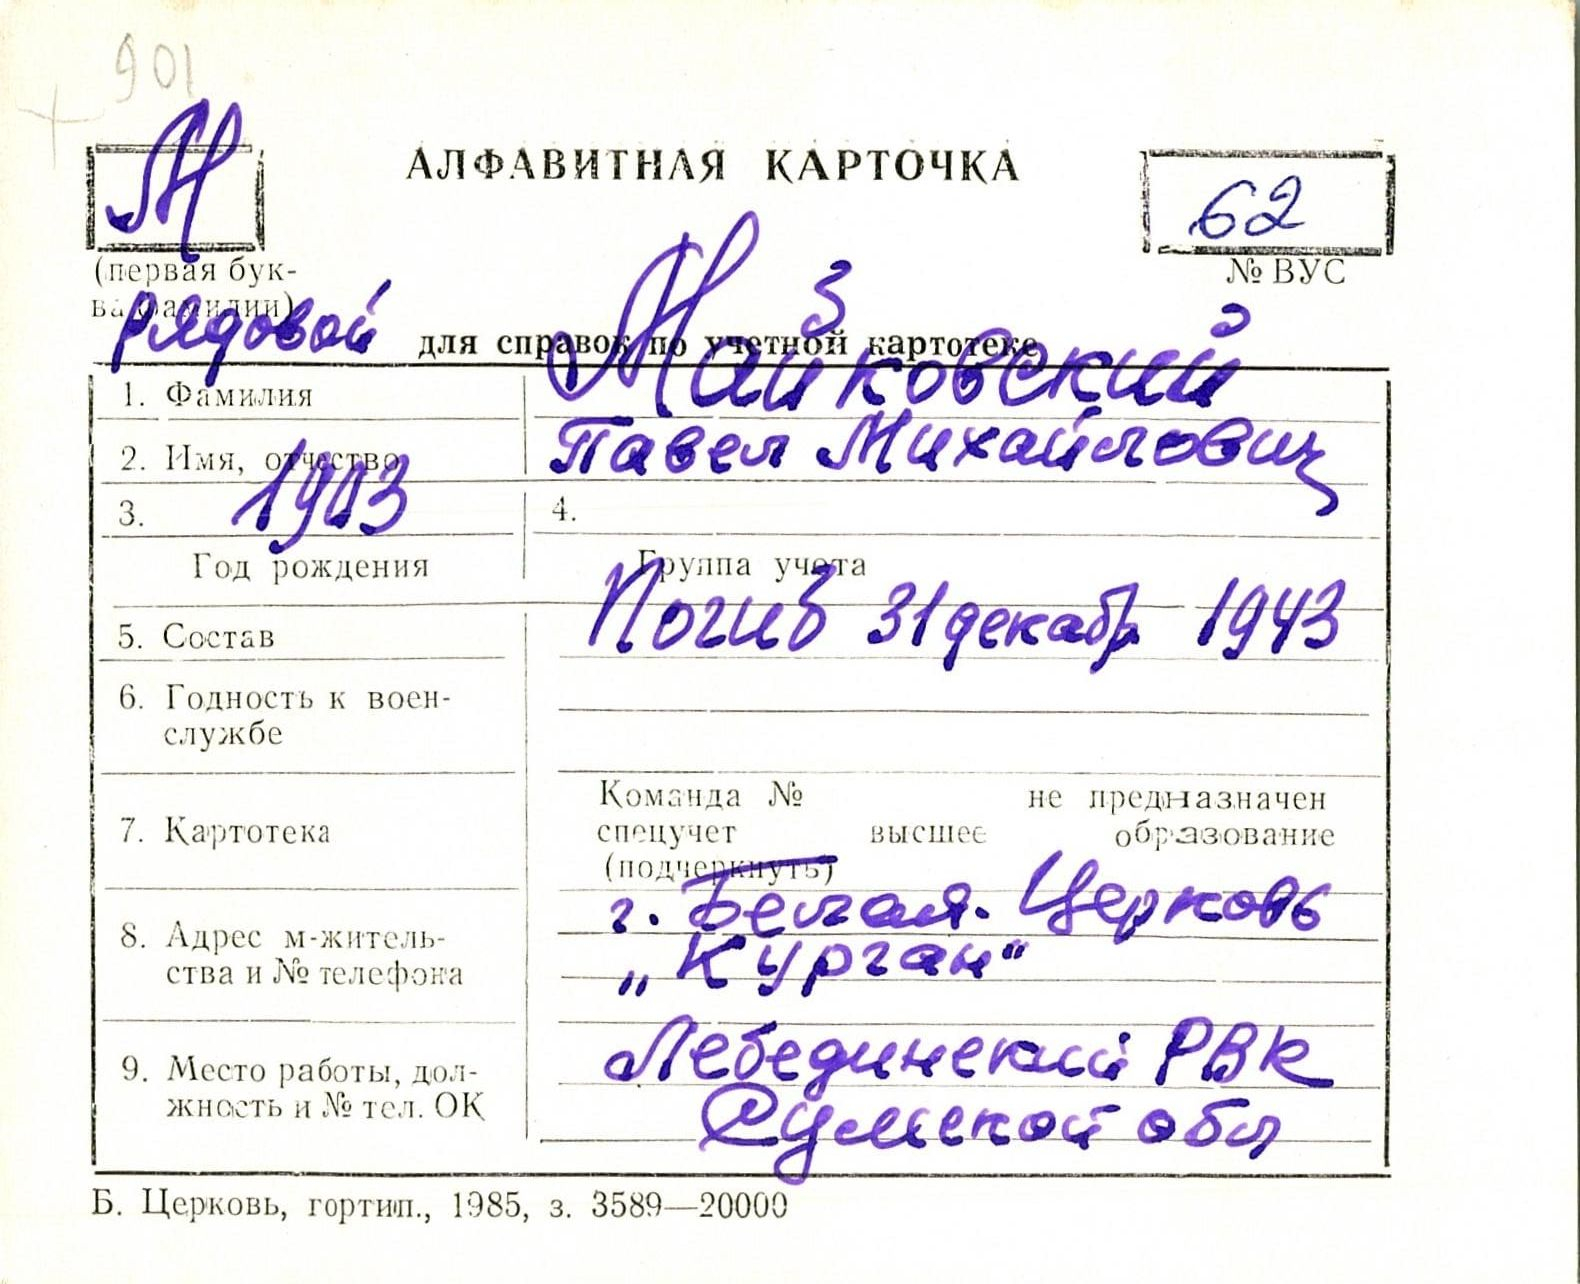 901
М
АЛФАВИТНАЯ КАРТОЧКА
62
(первая бук-
ва фамилии)
№ ВУС
рядовой
для справок по учетной картотеке
1. Фамилия
Майковский
2. Имя, отчество
Павел Михайлович
3. 1903
4.
Год рождения
Группа учета
5. Состав
Погиб 31 декабр 1943
6. Годность к воен-
службе
7. Картотека
Команда № не предназначен
спецучет высшее образование
(подчеркнуть)
8. Адрес м-житель-
ства и № телефона
г. Белая. Церковь
„Курган“
9. Место работы, дол-
жность и № тел. ОК
Лебединский РВК
Сумской обл
Б. Церковь, гортип., 1985, з. 3589—20000